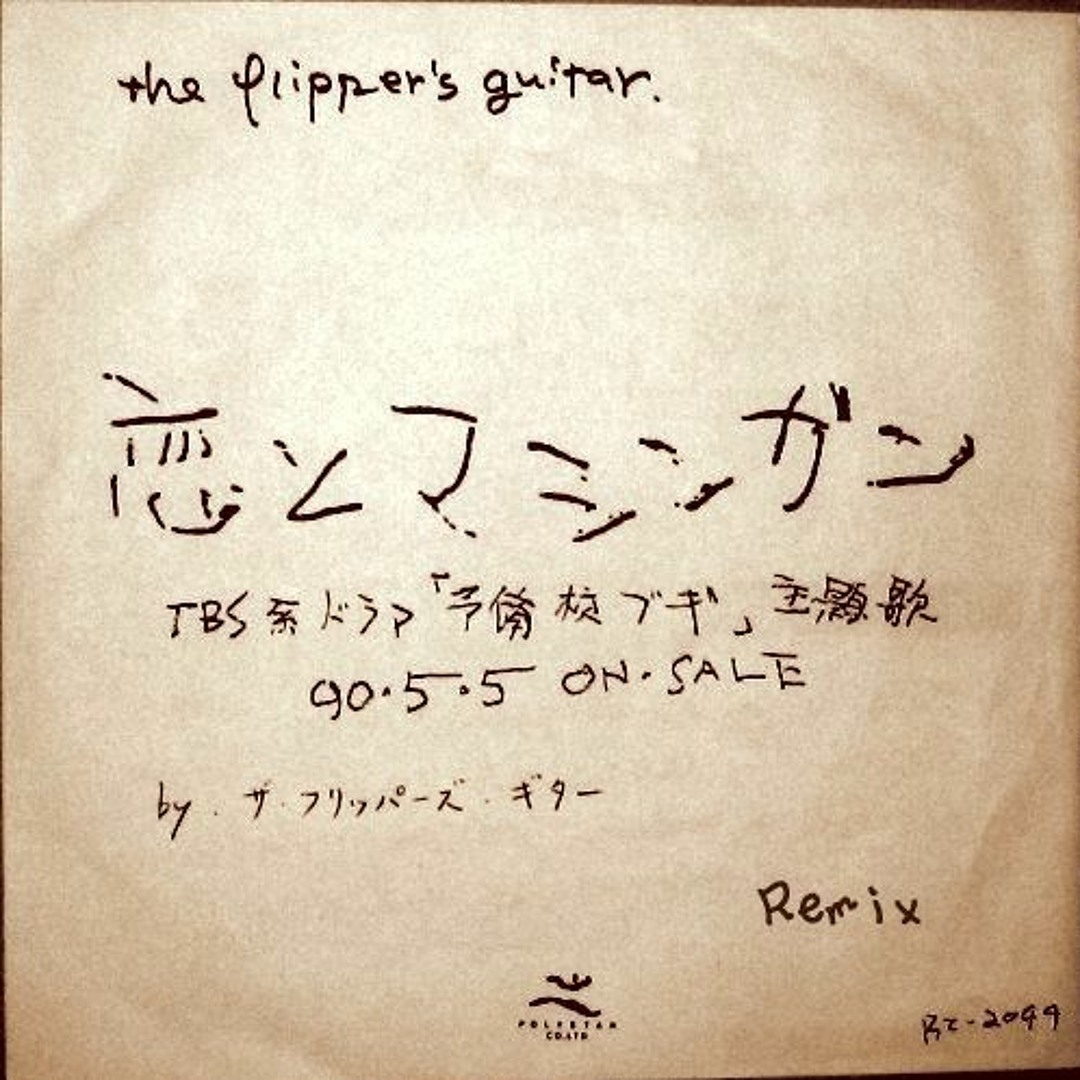 the flipper's guitar.
恋とマシンガン
TBS系ドラマ「予備校ブギ」主題歌
90・5・5 ON・SALE
by. ザ・フリッパーズ・ギター
Remix
POLYSTAR
CO.LTD